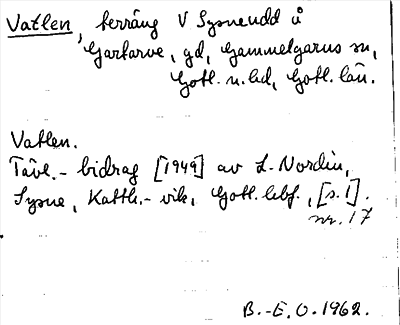 Vatlen, terräng V Sysneudd å
Gartarve, gd, Gammelgarns sn,
Gotl. n. hd, Gotl. län.
Vatlen.
Tävl.-bidrag [1949] av L. Nordin,
Sysne, Katth.-vik, Gotl. lbf., [s.1].
nr. 17
B.-E. O. 1962.